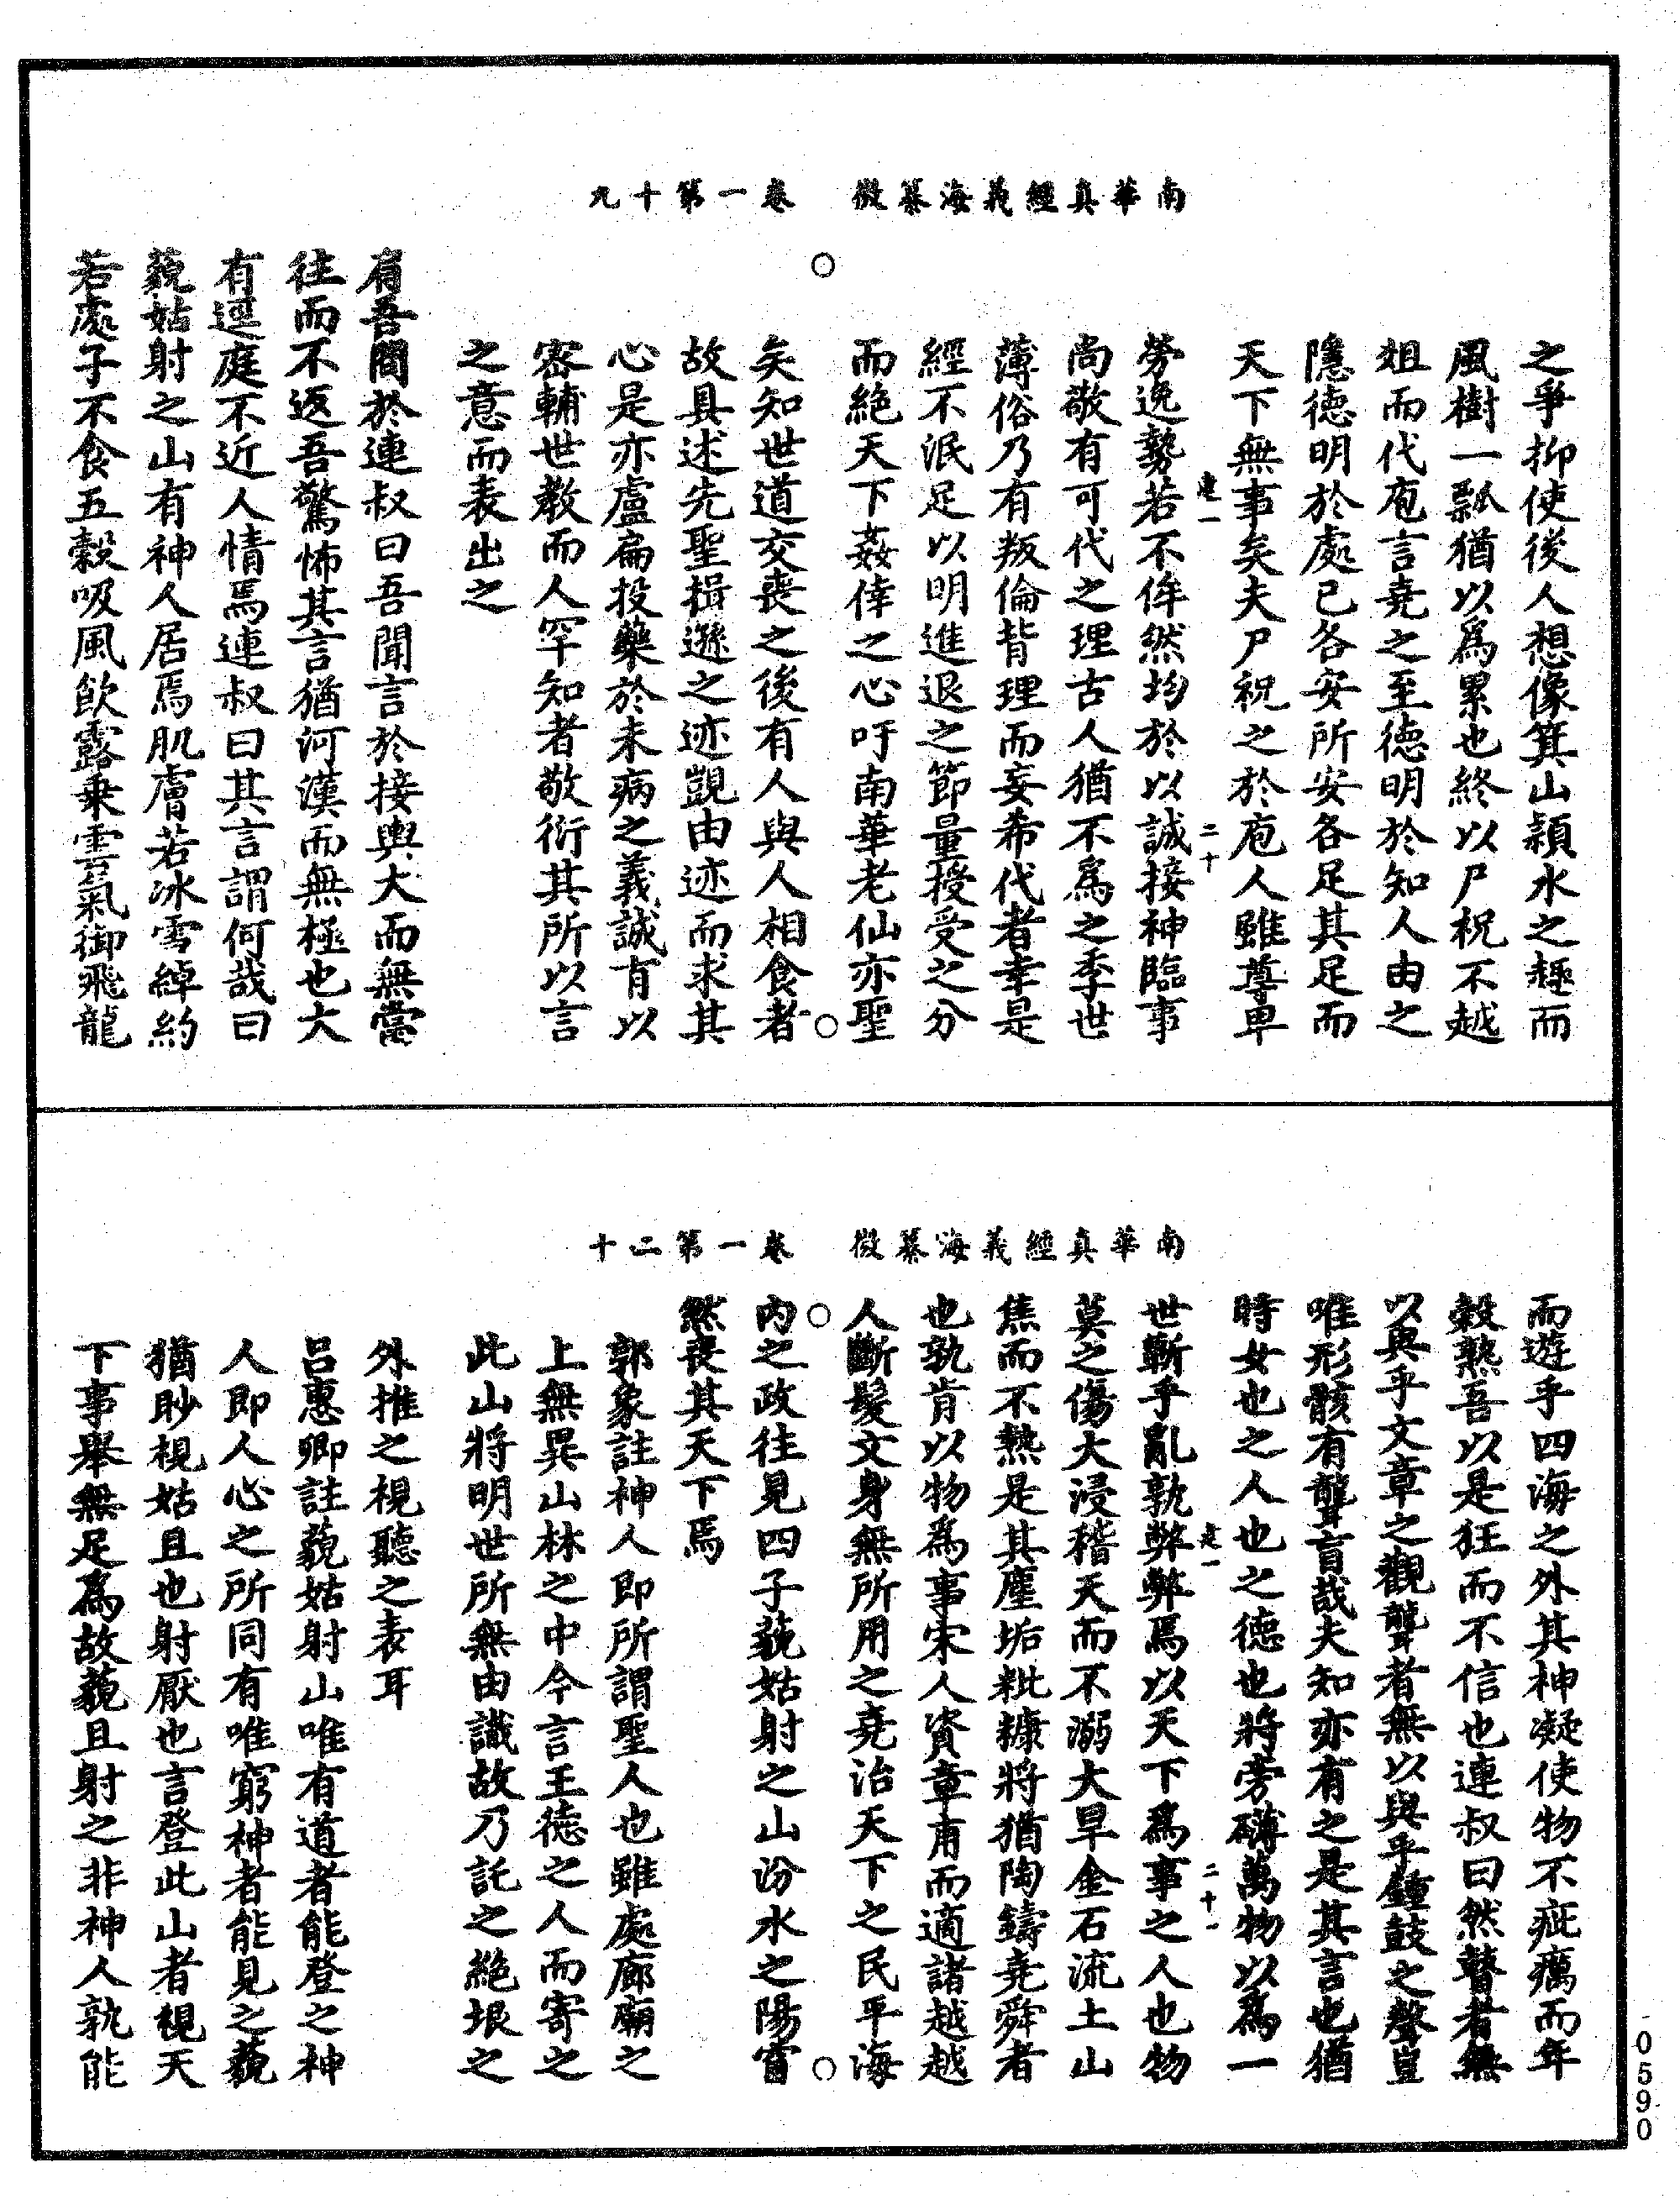 南華真經義海纂微　卷一第十九
之爭抑使後人想像箕山潁水之趣而
風樹一瓢猶以為累也終以尸祝不越
俎而代庖言堯之至德明於知人由之
隱德明於處己各安所安各足其足而
天下無事矣夫尸祝之於庖人雖尊卑
二十
勞逸勢若不侔然均於以誠接神臨事
尚敬有可代之理古人猶不為之季世
薄俗乃有叛倫背理而妄希代者幸是
經不泯足以明進退之節量授受之分
而絕天下姦倖之心吁南華老仙亦聖
矣知世道交喪之後有人與人相食者
故具述先聖揖遜之迹覬由迹而求其
心是亦盧扁投藥於未病之義誠有以
密輔世教而人罕知者敬衍其所以言
之意而表出之
肩吾問於連叔曰吾聞言於接輿大而無當
往而不返吾驚怖其言猶河漢而無極也大
有逕庭不近人情焉連叔曰其言謂何哉曰
藐姑射之山有神人居焉肌膚若冰雪綽約
若處子不食五穀吸風飲露乘雲氣御飛龍
南華真經義海纂微　卷一第二十
而遊乎四海之外其神凝使物不疵癘而年
穀熟吾以是狂而不信也連叔曰然瞽者無
以與乎文章之觀聾者無以與乎鍾鼓之聲豈
唯形骸有聾盲哉夫知亦有之是其言也猶
時女也之人也之德也將旁礴萬物以為一
二十一
世蘄乎亂孰弊弊焉以天下為事之人也物
莫之傷大浸稽天而不溺大旱金石流土山
焦而不熱是其塵垢粃糠將猶陶鑄堯舜者
也孰肯以物為事宋人資章甫而適諸越越
人斷髮文身無所用之堯治天下之民平海
內之政往見四子藐姑射之山汾水之陽窅
然喪其天下焉
郭象註神人即所謂聖人也雖處廊廟之
上無異山林之中今言王德之人而寄之
此山將明世所無由識故乃託之絕垠之
外推之視聽之表耳
呂惠卿註藐姑射山唯有道者能登之神
人即人心之所同有唯窮神者能見之藐
猶眇視姑且也射厭也言登此山者視天
下事舉無足為故藐且射之非神人孰能
0590